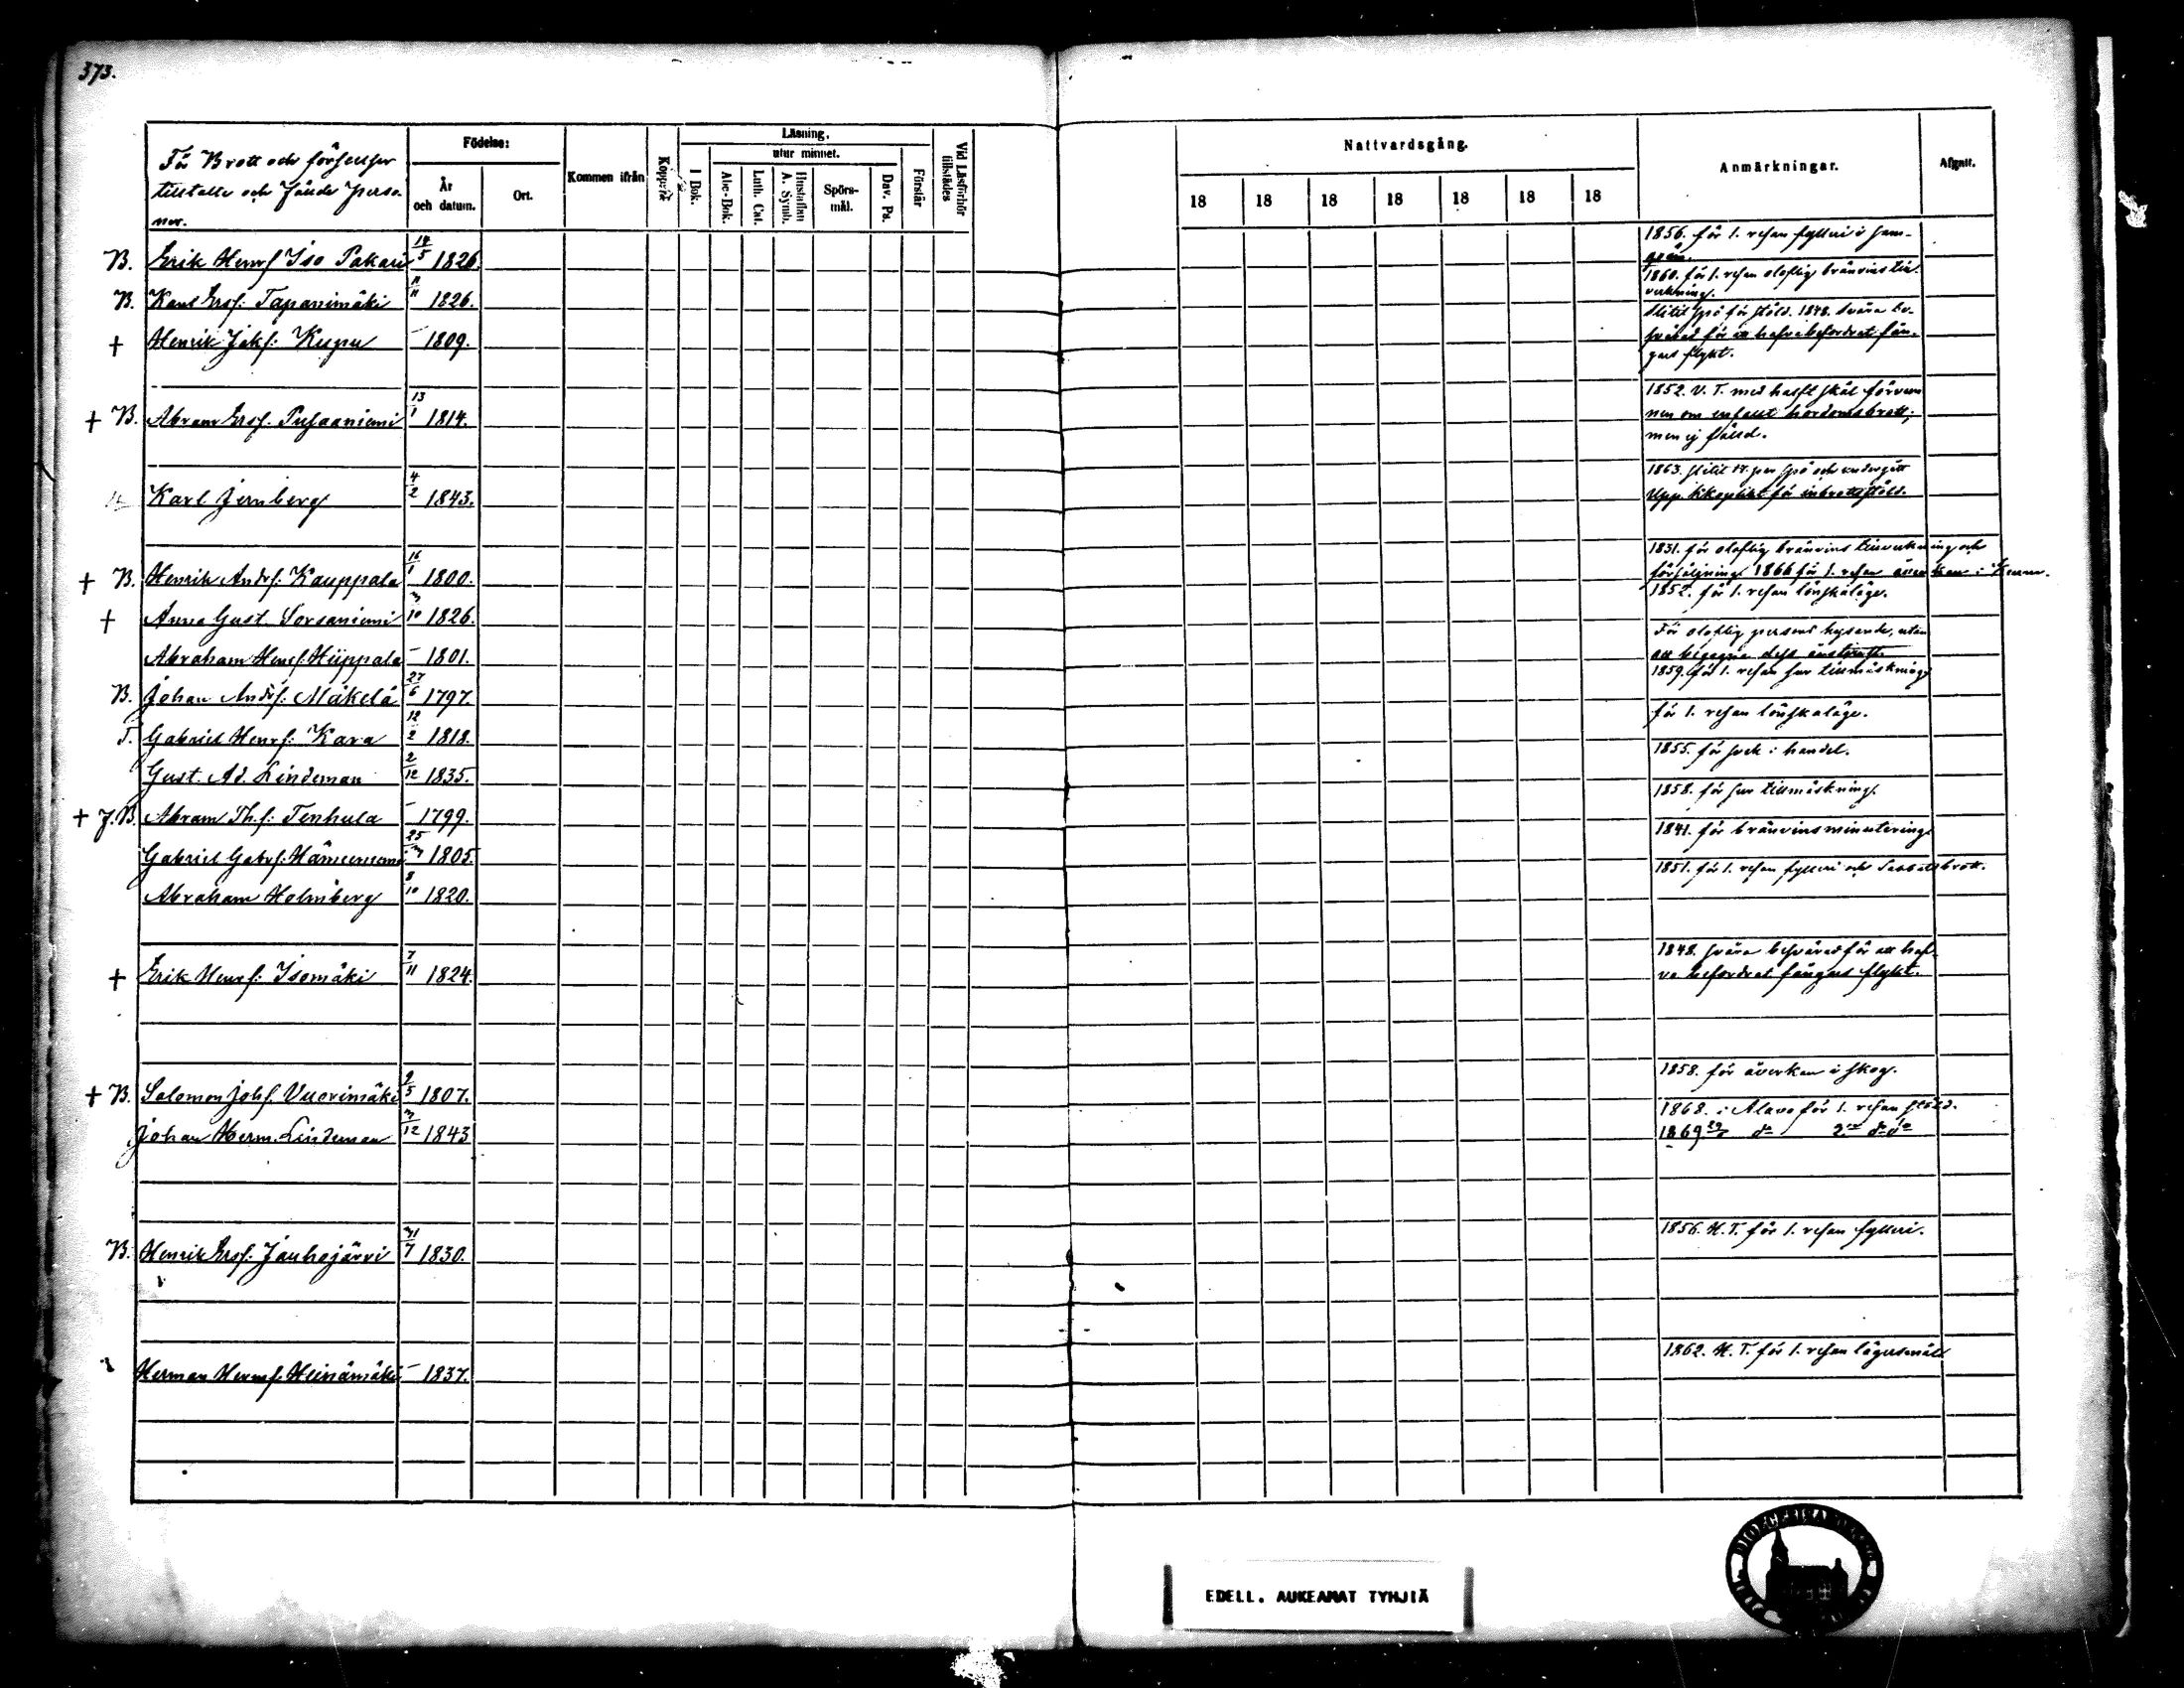 373.
För Brott och förseelser
tilltalte och fände perso-
ner.
Födelse:
År
och datum.
Ort.
Kommen ifrån
Koppor
Läsning.
I Bok.
utur minnet.
Abc-Bok.
Luth. Cat.
Hustaflan
A. Symb.
Spörs-
mål.
Dav. Ps.
Förstår
Vid Läsförhör
tillstädes
Nattvardsgång.
18 18 18 18 18 18 18
Anmärkningar.
Afgått.
B. Erik Henrs Iso Pakari 14/5 1826.
1856. för 1. resan fylleri i
B. Karl Erss: Tapanimäki 11/11 1826.
1860. för 1. resan oloflig bränvins till-
verkning.
+ Henrik Jaks: Kupu – 1809.
slitit spö för stöld. 1848. svåra be-
svärad för att hafva befordrat fån-
gars flykt.
+ B. Abram Ersf. Pusaaniemi 13/1 1814.
1852. V. T. med hafft skäl förvun
nen om enfalt hordomsbrott;
men ej fälld.
Karl Jernberg 4/2 1843.
1863. slitit 14 par spö och undergått
Upp. Kkoplikt för inbrottsstöld.
+ B. Henrik Andrs: Kauppala 16/1 1800.
1831. för oloflig bränvins tillverkning och
försäljning 1866 för 1. resan åverkan i
+ Anna Gust. Sorsaniemi 3/10 1826.
1852. för 1. resan lönskaläge.
Abraham Henrs: Hiippala – 1801.
För oloflig persons hysande, utan
att begagna dess
B. Johan Andrs: Mäkelä 27/6 1797.
1859. för 1. resan sur tillmäskning
T. Gabriel Henrs: Kara 12/2 1818.
för 1. resan lönskaläge.
Gust. Ad. Lindeman 2/12 1835.
1855. för svek i handel.
+ J. B. Abram Th.s: Tenhula – 1799.
1858. för sur tillmäskning.
Gabriel Gabrs: 25/3 1805.
1841. för bränvinsminutering
Abraham Holmberg 8/10 1820.
1851. för 1. resan fylleri och Sabbatsbrott.
+ Erik Henrs: Isomäki 7/11 1824.
1848. svåra besvärad för att haf-
va befordrat fångars flykt.
+ B. Salomon Johs. Vuorimäki 2/5 1807.
1858. för åverkan å skog.
Johan Herm. Lindeman 3/12 1843
1868. i Alavo för 1. resan stöld.
1869 do 2. do do
B. Henrik Ersf. Jauhojärvi 31/7 1830.
1856. H. T. för 1. resan fylleri.
Herman Herms. Heinämäki – 1837.
1862. H. T. för 1. resan lägersmål
EDELL. AUKEAMAT TYHJIÄ